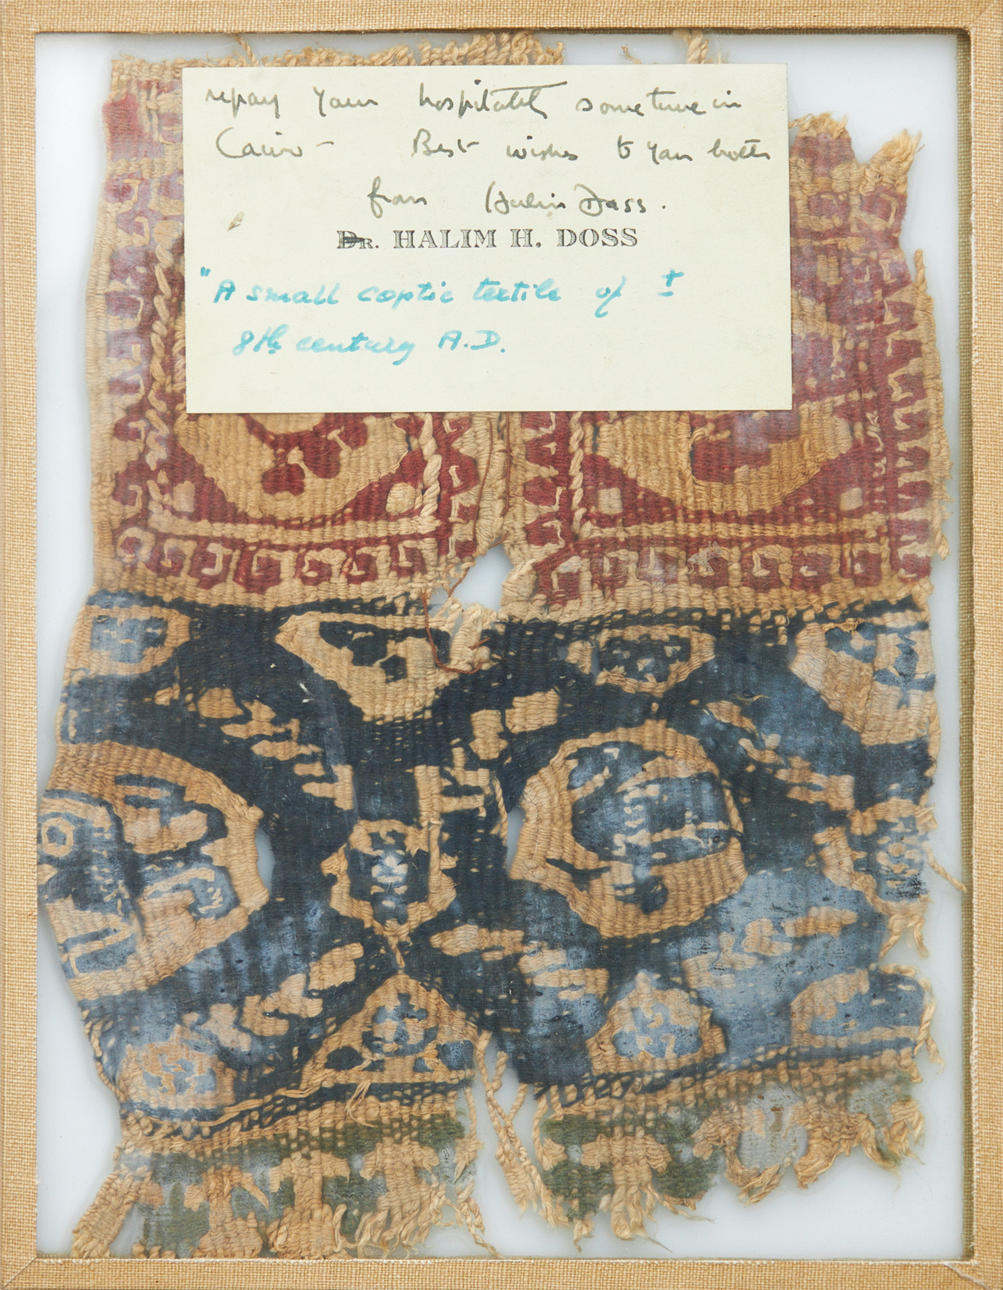 repay your hospitality sometime in
Cairo – Best wishes to you both
from Halim Doss.
Dr. HALIM H. DOSS
"A small coptic textile of ±
8th century A.D.